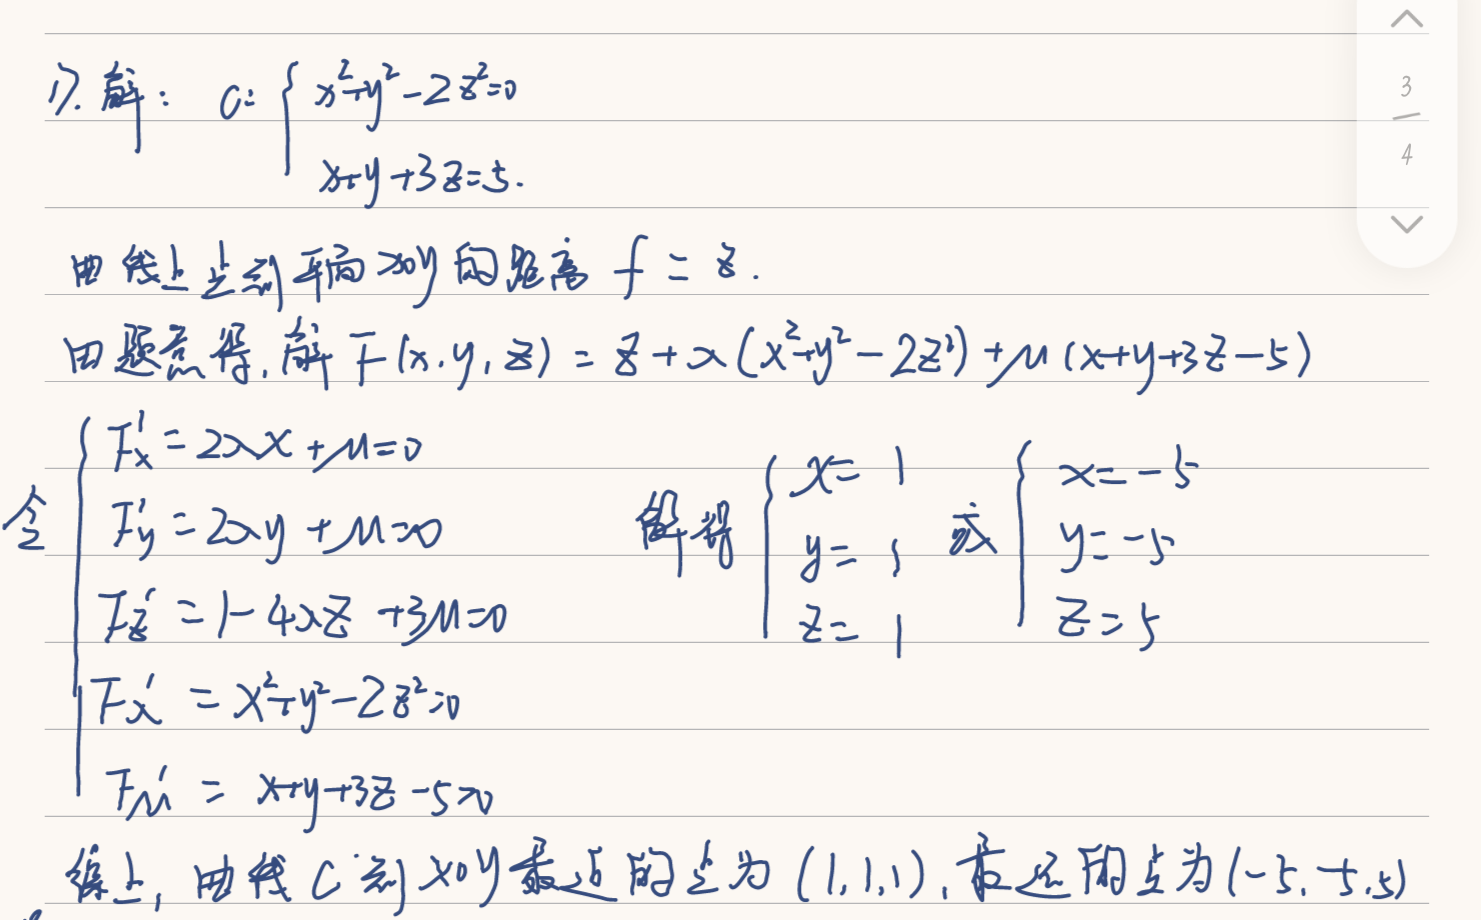 17. 解： C: { x²+y²-2z²=0
x+y+3z=5.
曲线上点到平面xoy的距离 f = z.
由题意得, 解 F(x, y, z) = z + λ(x²+y²-2z²) + μ(x+y+3z-5)
令 { F'x = 2λx + μ=0
F'y = 2λy + μ=0
F'z = 1-4λz +3μ=0
F'λ = x²+y²-2z²=0
F'μ = x+y+3z-5=0
解得 { x= 1
y= 1
z= 1
或 { x=-5
y=-5
z=5
综上, 曲线C到xoy最近的点为(1,1,1), 最远的点为(-5,-5,5)
3
4